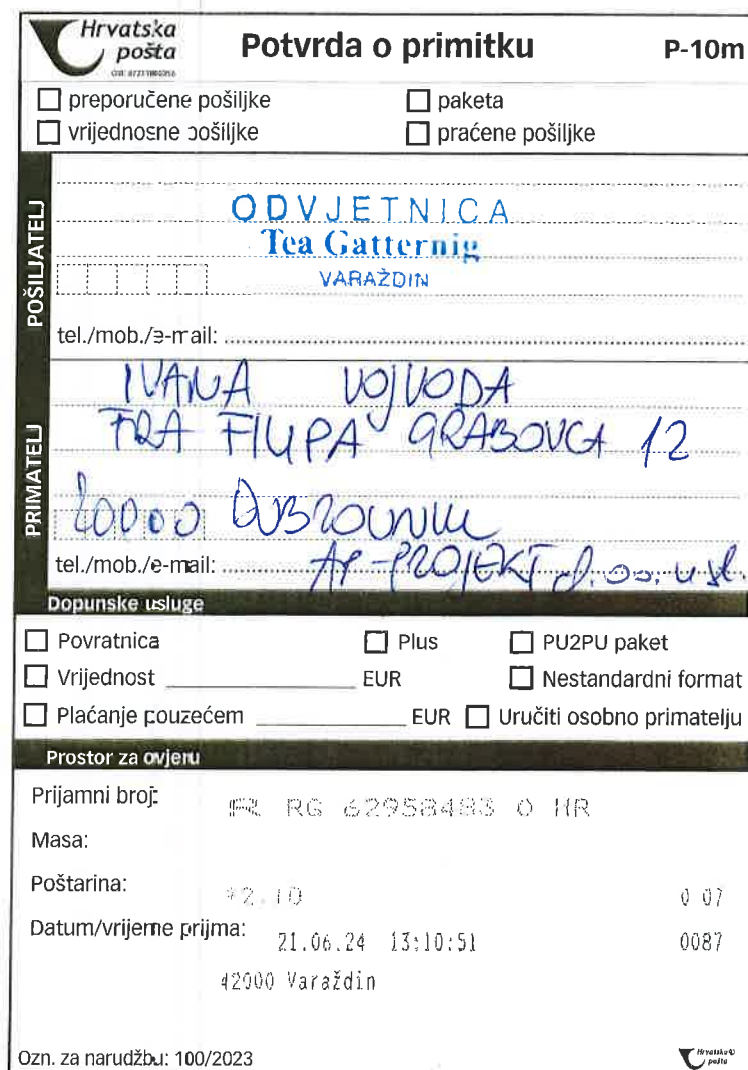 Hrvatska
pošta
Potvrda o primitku
P-10m
preporučene pošiljke
paketa
vrijednosne pošiljke
praćene pošiljke
POŠILJATELJ
ODVJETNICA
Tea Gatternig
VARAŽDIN
tel./mob./e-mail:
PRIMATELJ
IVANA VOJVODA
FRA FILIPA GRABOVCA 12
20000 DUBROVNIK
tel./mob./e-mail: AP-PROJEKT d.o.o. u st.
Dopunske usluge
Povratnica
Plus
PU2PU paket
Vrijednost EUR
Nestandardni format
Plaćanje pouzećem EUR
Uručiti osobno primatelju
Prostor za ovjeru
Prijamni broj: R RG 62958483 0 HR
Masa:
Poštarina: *2.10 0 07
Datum/vrijeme prijma: 21.06.24 13:10:51 0087
42000 Varaždin
Ozn. za narudžbu: 100/2023
Hrvatska
pošta